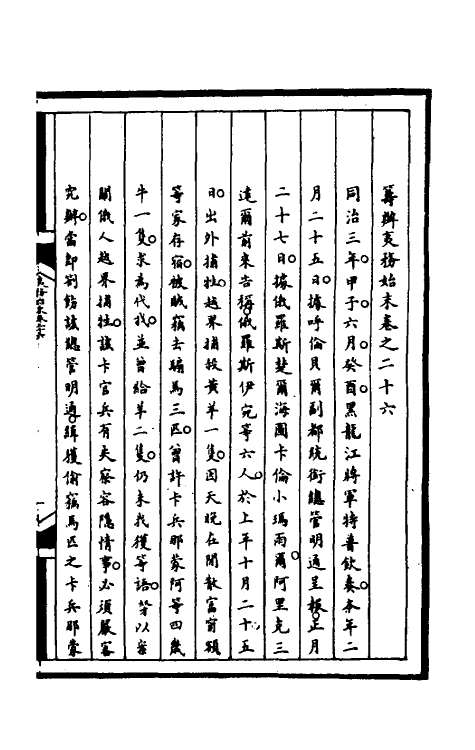 籌辦夷務始末卷之二十六
同治三年。甲子。六月。癸酉。黑龍江將軍特普欽奏。本年二
月二十五日。據呼倫貝爾副都統銜總管明通呈報。正月
二十七日。據俄羅斯楚爾海圖卡倫小瑪雨爾。阿里克三
達爾前來告稱。俄羅斯伊完等六人。於上年十月二十五
日。出外捕牲。越界捕殺黃羊一隻。因天晚在閒散富甯額
等家存宿。被賊竊去騸馬三匹。曾許卡兵那蒙阿等四幾
牛一隻。求為代找。並曾給羊二隻。仍未找獲等語。等以案
關俄人越界捕牲。該卡官兵有失察容隱情事。必須嚴密
究辦。當即劄飭該總管明通。緝獲偷竊馬匹之卡兵那蒙